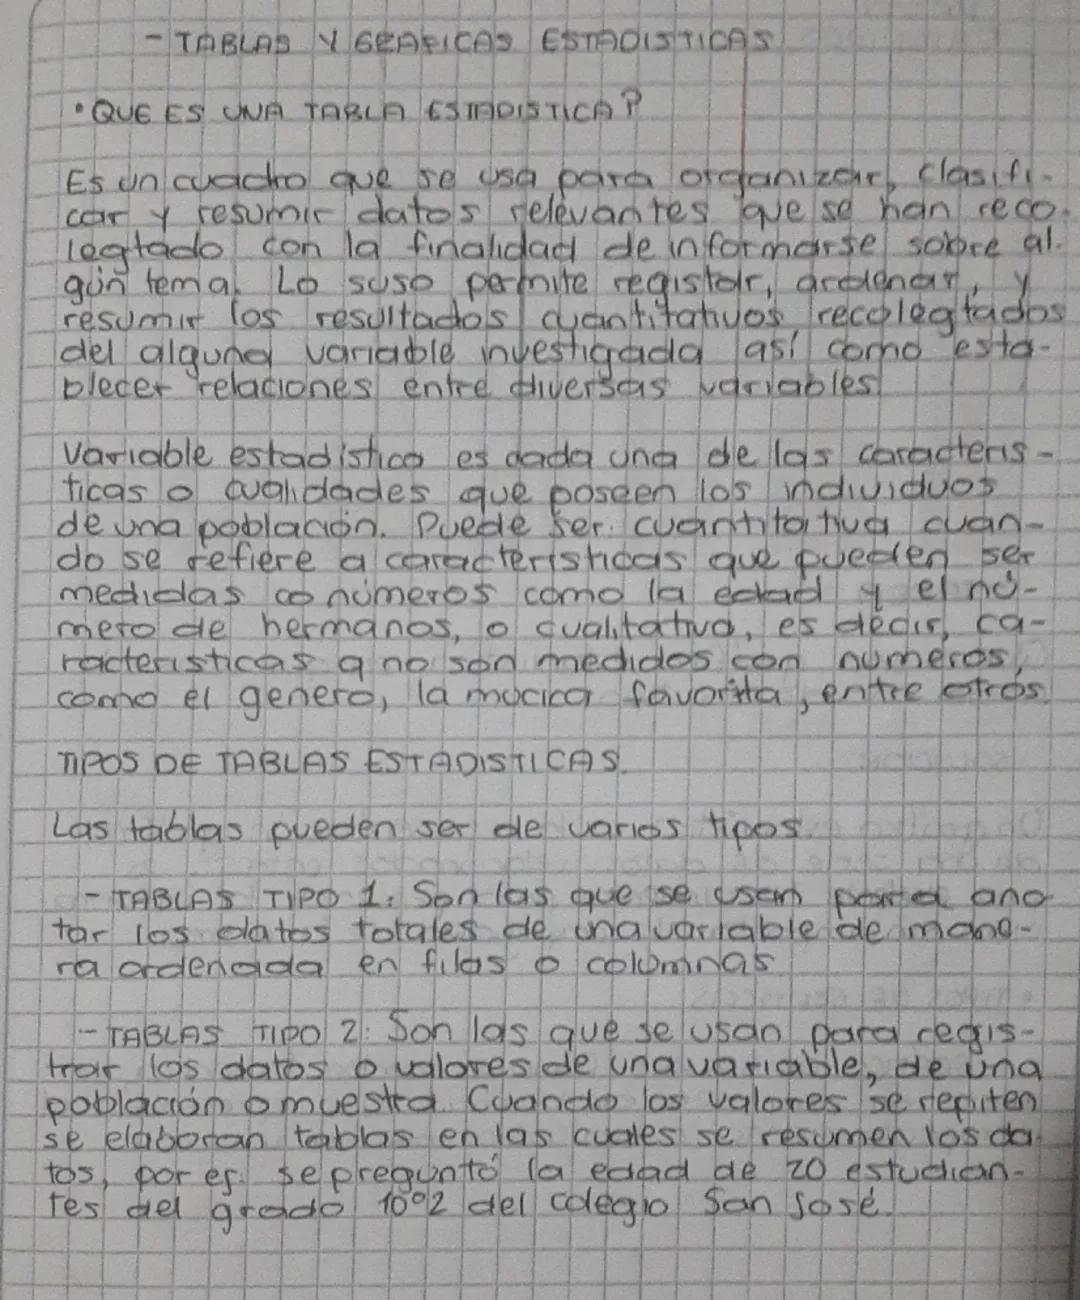 - TABLAS Y GRAFICAS ESTADISTICAS
• QUE ES UNA TABLA ESTADISTICA?
Es un cuadro que se usa para organizar, clasifi-
car y resumir datos relevantes que se han reco-
legtado con la finalidad de informarse sobre al-
gún tema. Lo suso permite registar, ordenar, y
resumir los resultados cuantitativos recolegtados
del alguna variable investigada así como esta-
blecer relaciones entre diversas variables
Variable estadistica es dada una de las caracteris-
ticas o cualidades que poseen los individuos
de una población. Puede ser cuantitativa cuan-
do se refiere a caracteristicas que pueden ser
medidas co números como la edad y el nú-
mero de hermanos, o cualitativa, es decir, ca-
racteristicas q no son medidos con numeros,
como el genero, la mucica favorita, entre otros
TIPOS DE TABLAS ESTADISTICAS.
Las tablas pueden ser de varios tipos.
- TABLAS TIPO 1: Son las que se usan para ano
tar los datos totales de una variable de mane-
ra ordenada en filas o columnas
- TABLAS TIPO 2: Son las que se usan para regis-
trar los datos o valores de una variable, de una
población o muestra. Cuando los valores se repiten
se elaboran tablas en las cuales se resumen los da
tos, por ej. se preguntó la edad de 20 estudian-
tes del grado 10°2 del colegio San José.